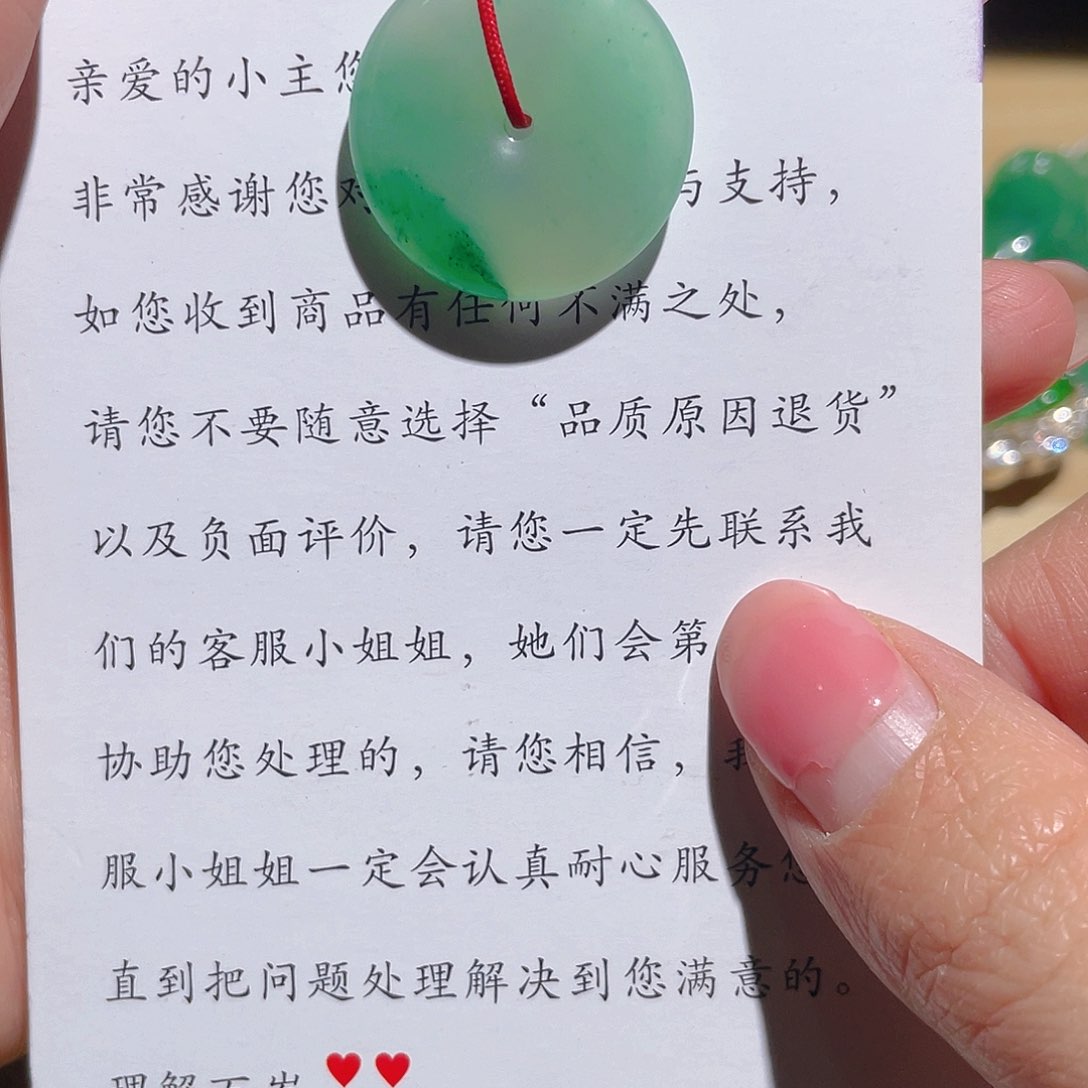 亲爱的小主您
非常感谢您对与支持，
如您收到商品有任何不满之处，
请您不要随意选择“品质原因退货”
以及负面评价，请您一定先联系我
们的客服小姐姐，她们会第
协助您处理的，请您相信，我
服小姐姐一定会认真耐心服务您
直到把问题处理解决到您满意的。
理解万岁